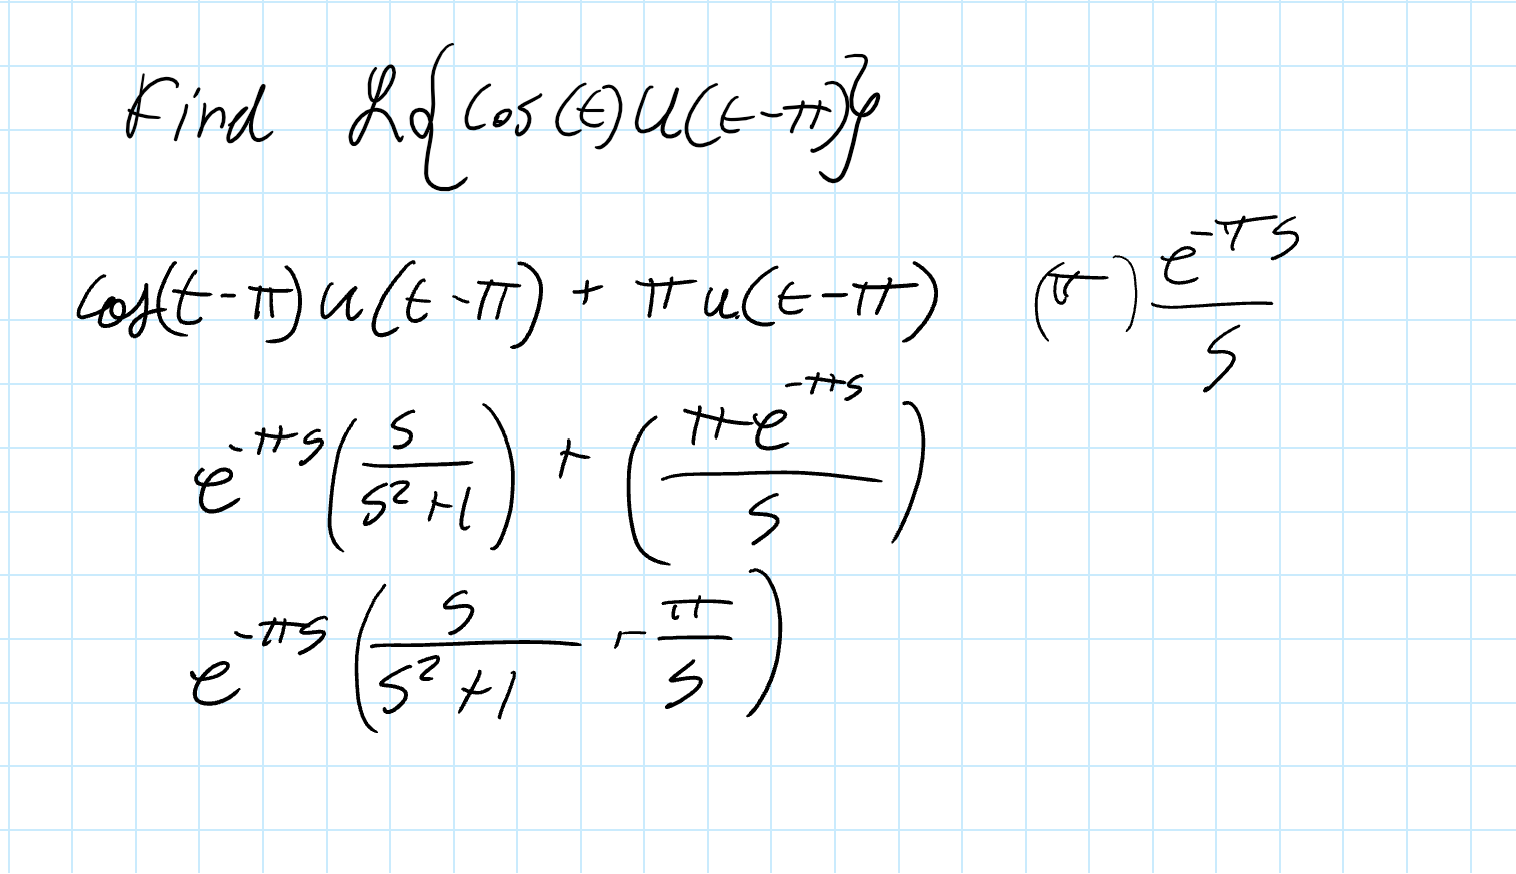 Find ℒ{cos(t)U(t-π)}
cos(t-π)u(t-π) + πu(t-π) (π) e^{-πs}/s
e^{-πs}(s/(s²+1)) + (πe^{-πs}/s)
e^{-πs}(s/(s²+1) - π/s)